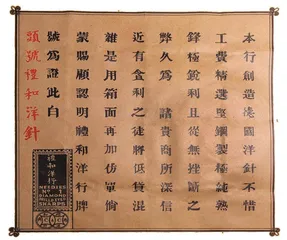 本行創造德國洋針不惜
工費精選堅鋼製極純熟
鋒極銳利且從無挫鏽之
弊久爲 諸貴商所深信
近有利之徒將低貨混
是用箱面再加仿單倘
蒙賜顧認明禮和洋行牌
號爲證此白
頭號禮和洋針
禮和洋行
NEEDLES
DIAMOND
SHARPS